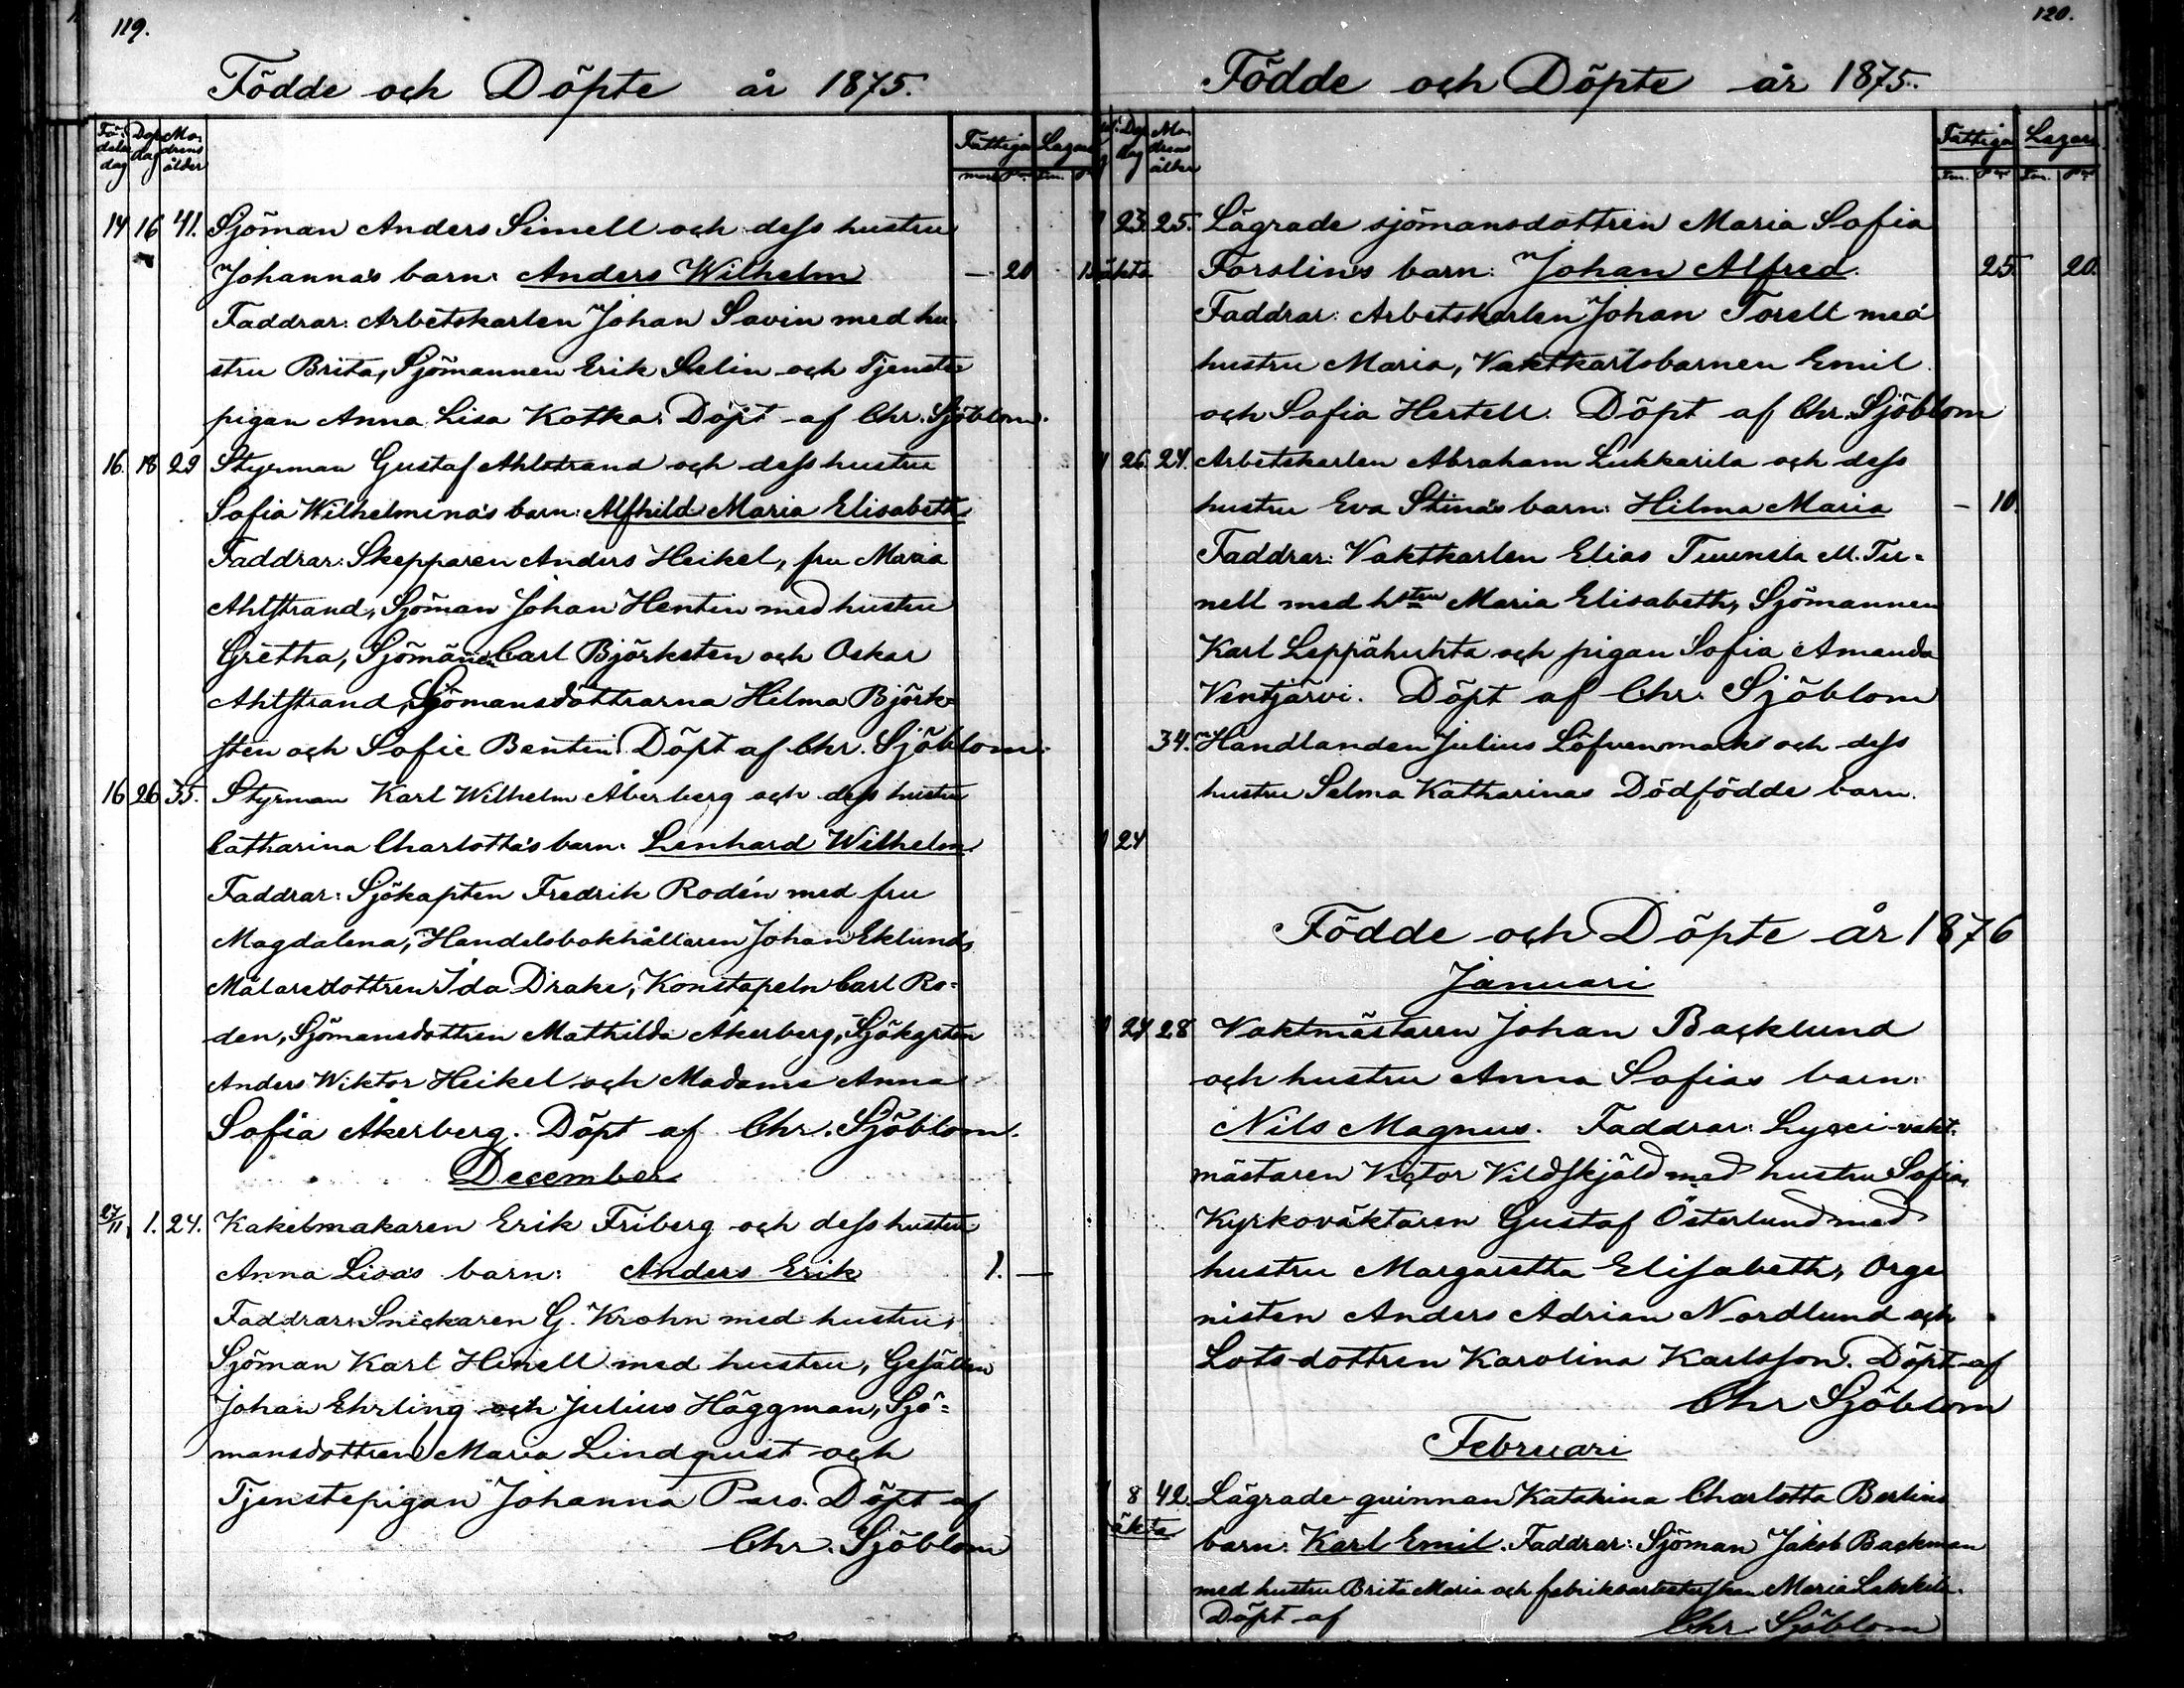 119.
Födde och Döpte år 1875.
Födelse dag Dop dag Modrens ålder Fattiga Lazar.
14 16 41. Sjöman Anders Simell och dess hustru
Johanna's barn: Anders Wilhelm — 20
Faddrar: Arbetskarlen Johan Savin med hu-
stru Brita, Sjömannen Erik Selin och Tjenste
pigan Anna Lisa Kotka. Döpt af Chr. Sjöblom.
16. 18 29 Styrman Gustaf Ahlstrand och dess hustru
Sofia Wilhelmina's barn: Alfhild Maria Elisabeth
Faddrar: Skepparen Anders Heikel, fru Maria
Ahlstrand, Sjöman Johan Hentin med hustru
Gretha, Sjömännen Carl Björksten och Oskar
Ahlstrand, Sjömansdöttrarna Hilma Björk-
sten och Sofie Bentin. Döpt af Chr. Sjöblom.
16 26 35. Styrman Karl Wilhelm Åkerberg och dess hustru
Catharina Charlotta's barn: Lenhard Wilhelm.
Faddrar: Sjökapten Fredrik Rodén med fru
Magdalena, Handelsbokhållaren Johan Eklund,
Målaredottren Ida Drake, Konstapeln Carl Ro-
den, Sjömansdottren Mathilda Åkerberg, Sjökapten
Anders Wiktor Heikel och Madame Anna
Sofia Åkerberg. Döpt af Chr. Sjöblom.
December
27/11 1. 24. Kakelmakaren Erik Friberg och dess hustru
Anna Lisas barn: Anders Erik 1. —
Faddrar: Snickaren G. Krohn med hustru,
Sjöman Karl Hinell med hustru, Gesällen
Johan Ehrling och Julius Häggman, Sjö-
mansdottren Maria Lindqvist och
Tjenstepigan Johanna Pers. Döpt af
Chr. Sjöblom
120.
Födde och Döpte år 1875.
Dop dag Modrens ålder Fattiga Lazar.
23. 25. Lägrade sjömansdottren Maria Sofia
äkta Forslin's barn: Johan Alfred. 25 20.
Faddrar: Arbetskarlen Johan Torell med
hustru Maria, Vaktkarlsbarnen Emil
och Sofia Hertell. Döpt af Chr. Sjöblom
26. 24. Arbetskarlen Abraham Lukkarila och dess
hustru Eva Stina's barn: Hilma Maria — 10.
Faddrar: Vaktkarlen Elias Tuunela M. Tu-
nell med hstru Maria Elisabeth, Sjömannen
Karl Leppähuhta och pigan Sofia Amanda
Ventjärvi. Döpt af Chr. Sjöblom
34. Handlanden Julius Löfvenmark och dess
hustru Selma Katharinas Dödfödde barn.
24
Födde och Döpte år 1876
Januari
24 28 Vaktmästaren Johan Backlund
och hustru Anna Sofias barn:
Nils Magnus. Faddrar: Lycei-vakt-
mästaren Victor Vildskjöld med hustru Sofia,
Kyrkoväktaren Gustaf Österlund med
hustru Margaretha Elisabeth, Orga
nisten Anders Adrian Nordlund och
Lots-dottren Karolina Karlsson. Döpt af
Chr Sjöblom
Februari
8 42. Lägrade qvinnan Katarina Charlotta Berlins
äkta barn: Karl Emil. Faddrar: Sjöman Jakob Backman
med hustru Brita Maria och fabriksarbeterskan Maria
Döpt af Chr Sjöblom